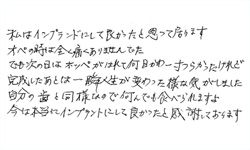 私はインプラントにして良かったと思って居ります
オペの時は全く痛くありませんでした
でも次の日はホッペがはれて何日かわつらかったけれど
完成したあとは一瞬人生が変わった様な気がしました
自分の歯と同様なので何んでも食べられますよ
今は本当にインプラントにして良かったと感謝しております